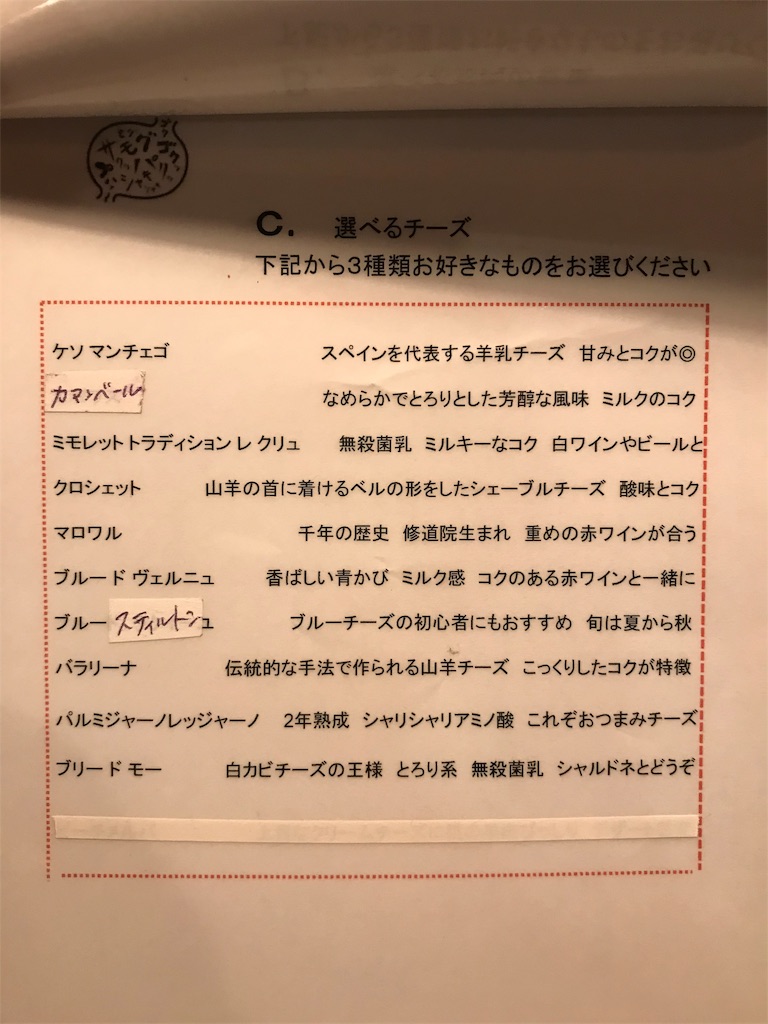 C. 選べるチーズ
下記から３種類お好きなものをお選びください
ケソ マンチェゴ スペインを代表する羊乳チーズ 甘みとコクが◎
カマンベール なめらかでとろりとした芳醇な風味 ミルクのコク
ミモレットトラディション レ クリュ 無殺菌乳 ミルキーなコク 白ワインやビールと
クロシェット 山羊の首に着けるベルの形をしたシェーブルチーズ 酸味とコク
マロワル 千年の歴史 修道院生まれ 重めの赤ワインが合う
ブルー ド ヴェルニュ 香ばしい青かび ミルク感 コクのある赤ワインと一緒に
ブルー スティルトン ュ ブルーチーズの初心者にもおすすめ 旬は夏から秋
バラリーナ 伝統的な手法で作られる山羊チーズ こっくりしたコクが特徴
パルミジャーノレッジャーノ 2年熟成 シャリシャリアミノ酸 これぞおつまみチーズ
ブリード モー 白カビチーズの王様 とろり系 無殺菌乳 シャルドネとどうぞ